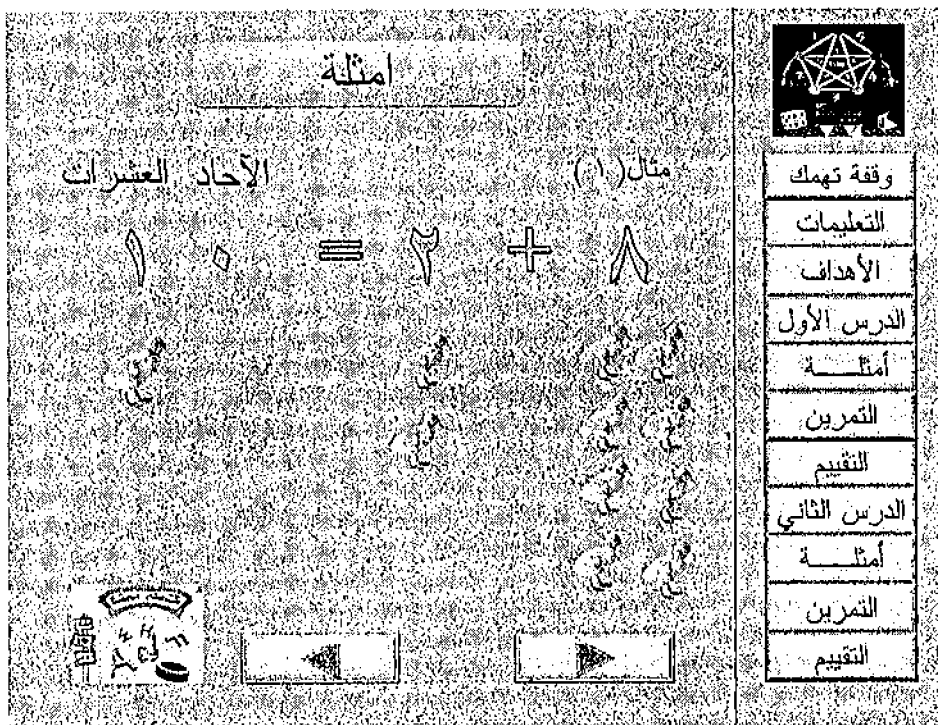 امثلة
مثال(١) الآحاد العشرات
٨ + ٢ = ٠ ١
وقفة تهمك
التعليمات
الأهداف
الدرس الأول
أمثلـــــة
التمرين
التقييم
الدرس الثاني
أمثلـــــة
التمرين
التقييم